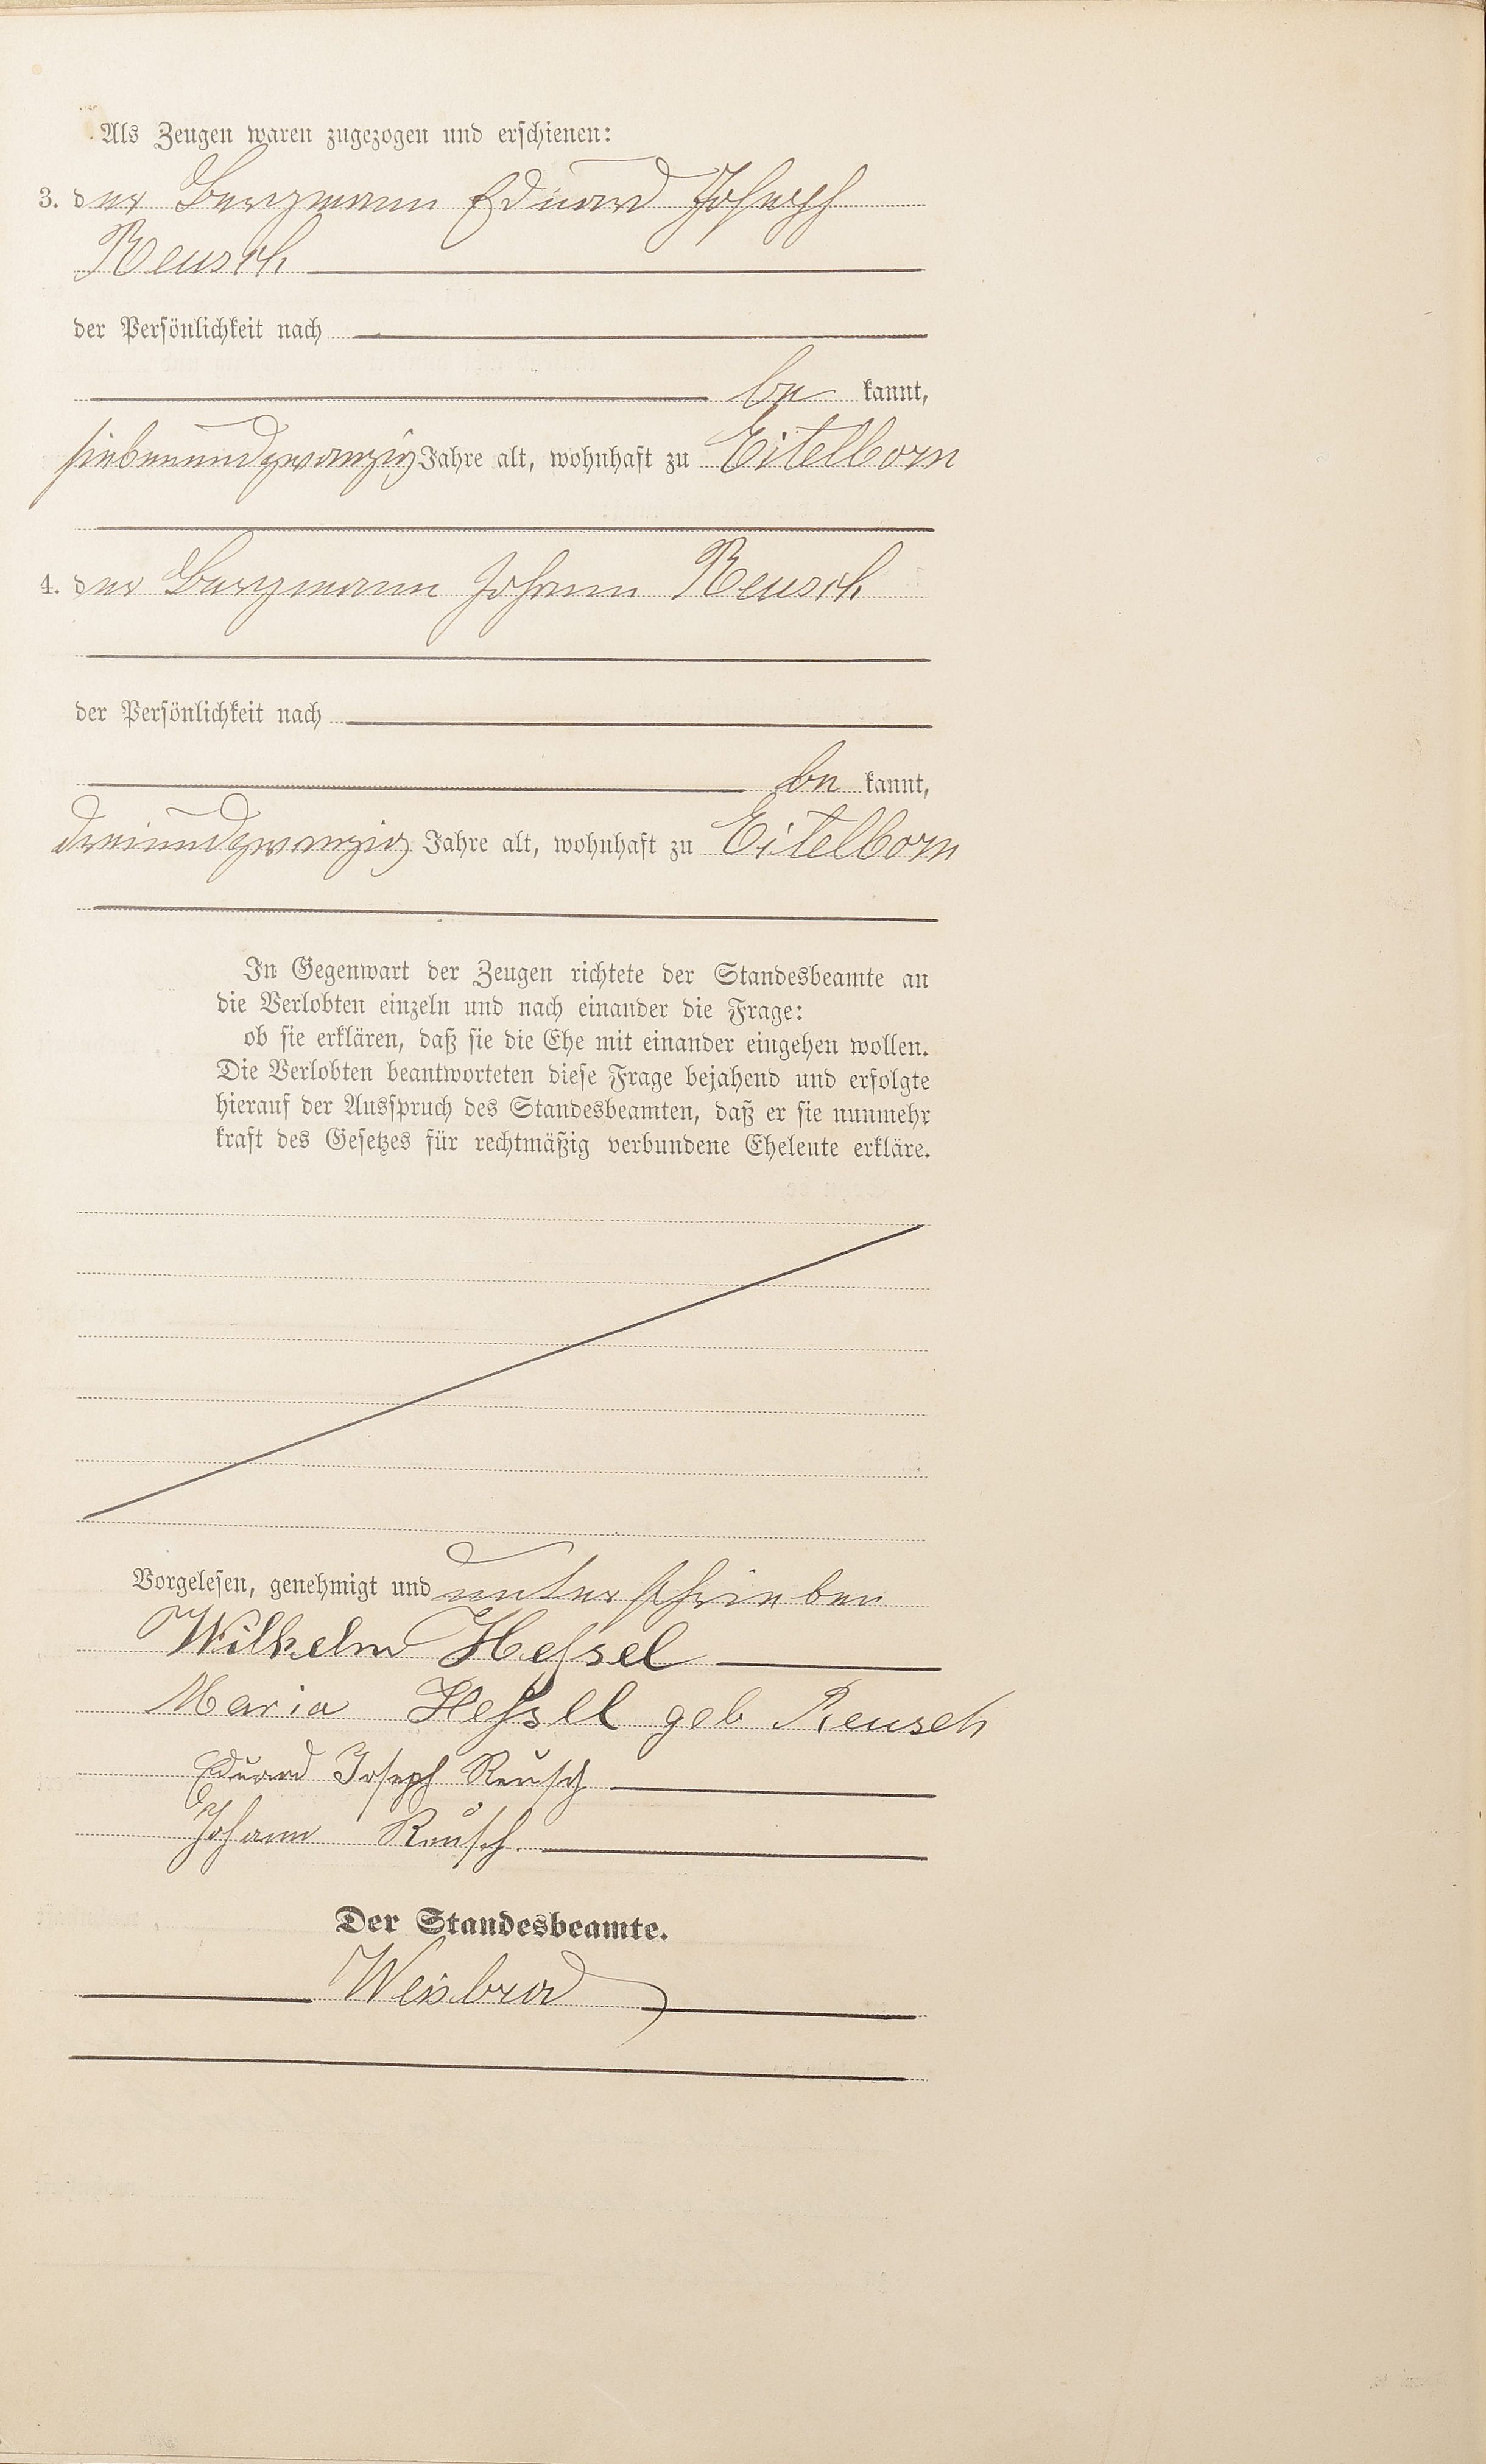 Als Zeugen waren zugezogen und erschienen:
3. der Bergmann Eduard Joseph
Reusch
der Persönlichkeit nach
be kannt,
siebenundzwanzig Jahre alt, wohnhaft zu Eitelborn
4. der Bergmann Johann Reusch
der Persönlichkeit nach
be kannt,
dreiundzwanzig Jahre alt, wohnhaft zu Eitelborn
In Gegenwart der Zeugen richtete der Standesbeamte an
die Verlobten einzeln und nach einander die Frage:
ob sie erklären, daß sie die Ehe mit einander eingehen wollen.
Die Verlobten beantworteten diese Frage bejahend und erfolgte
hierauf der Ausspruch des Standesbeamten, daß er sie nunmehr
kraft des Gesetzes für rechtmäßig verbundene Eheleute erkläre.
Vorgelesen, genehmigt und unterschrieben
Wilhelm Heſsel
Maria Heſsel geb Reusch
Eduard Joseph Reusch
Johann Reusch.
Der Standesbeamte.
Weisbrod